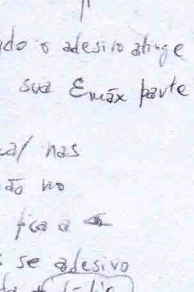 do o adesivo atinge
sua εmáx parte
cal nas
ão no
fica a
s se adesivo